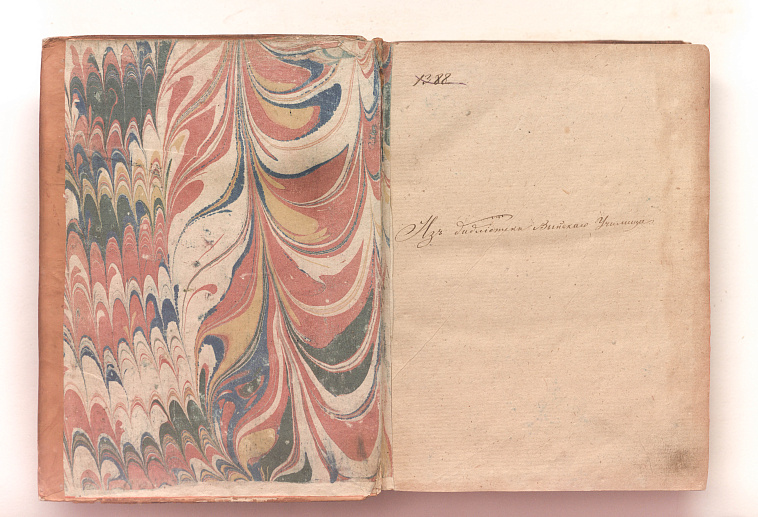 1388
Изъ библіотеки Бійскаго Училища.